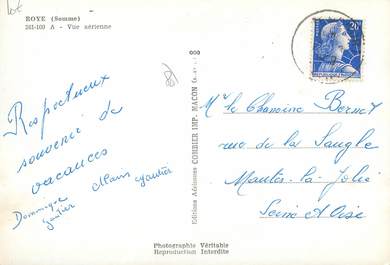 ROYE (Somme)
261-100 A - Vue aérienne
Respectueux
souvenir de
vacances
Dominique
Gautier
Alain Gautier
Editions Aériennes COMBIER IMP. MACON
20F
POSTES
Mr le Chanoine Bernet
rue de la Sangle
Mantes-la-Jolie
Seine et Oise
Photographie Véritable
Reproduction Interdite